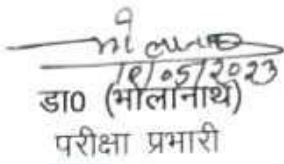 भोलानाथ
18/05/2023
डा0 (भोलानाथ)
परीक्षा प्रभारी